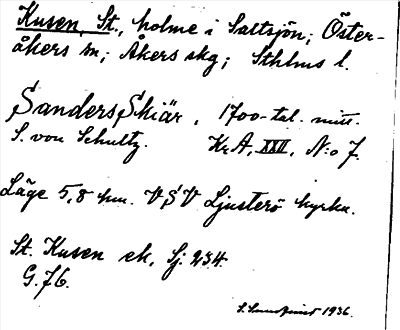 Kusen, St., holme i Saltsjön; Öster-
åkers sn; Åkers skg; Sthlms l.
Sanders Skiär, 1700-tal. mitt.
S. von Schultz. Kr.A, XXII, N:o 7.
Läge 5,8 km. VSV Ljusterö kyrka.
St. Kusen ek. Sj. 234.
G. 76.
S. Lundqvist 1936.